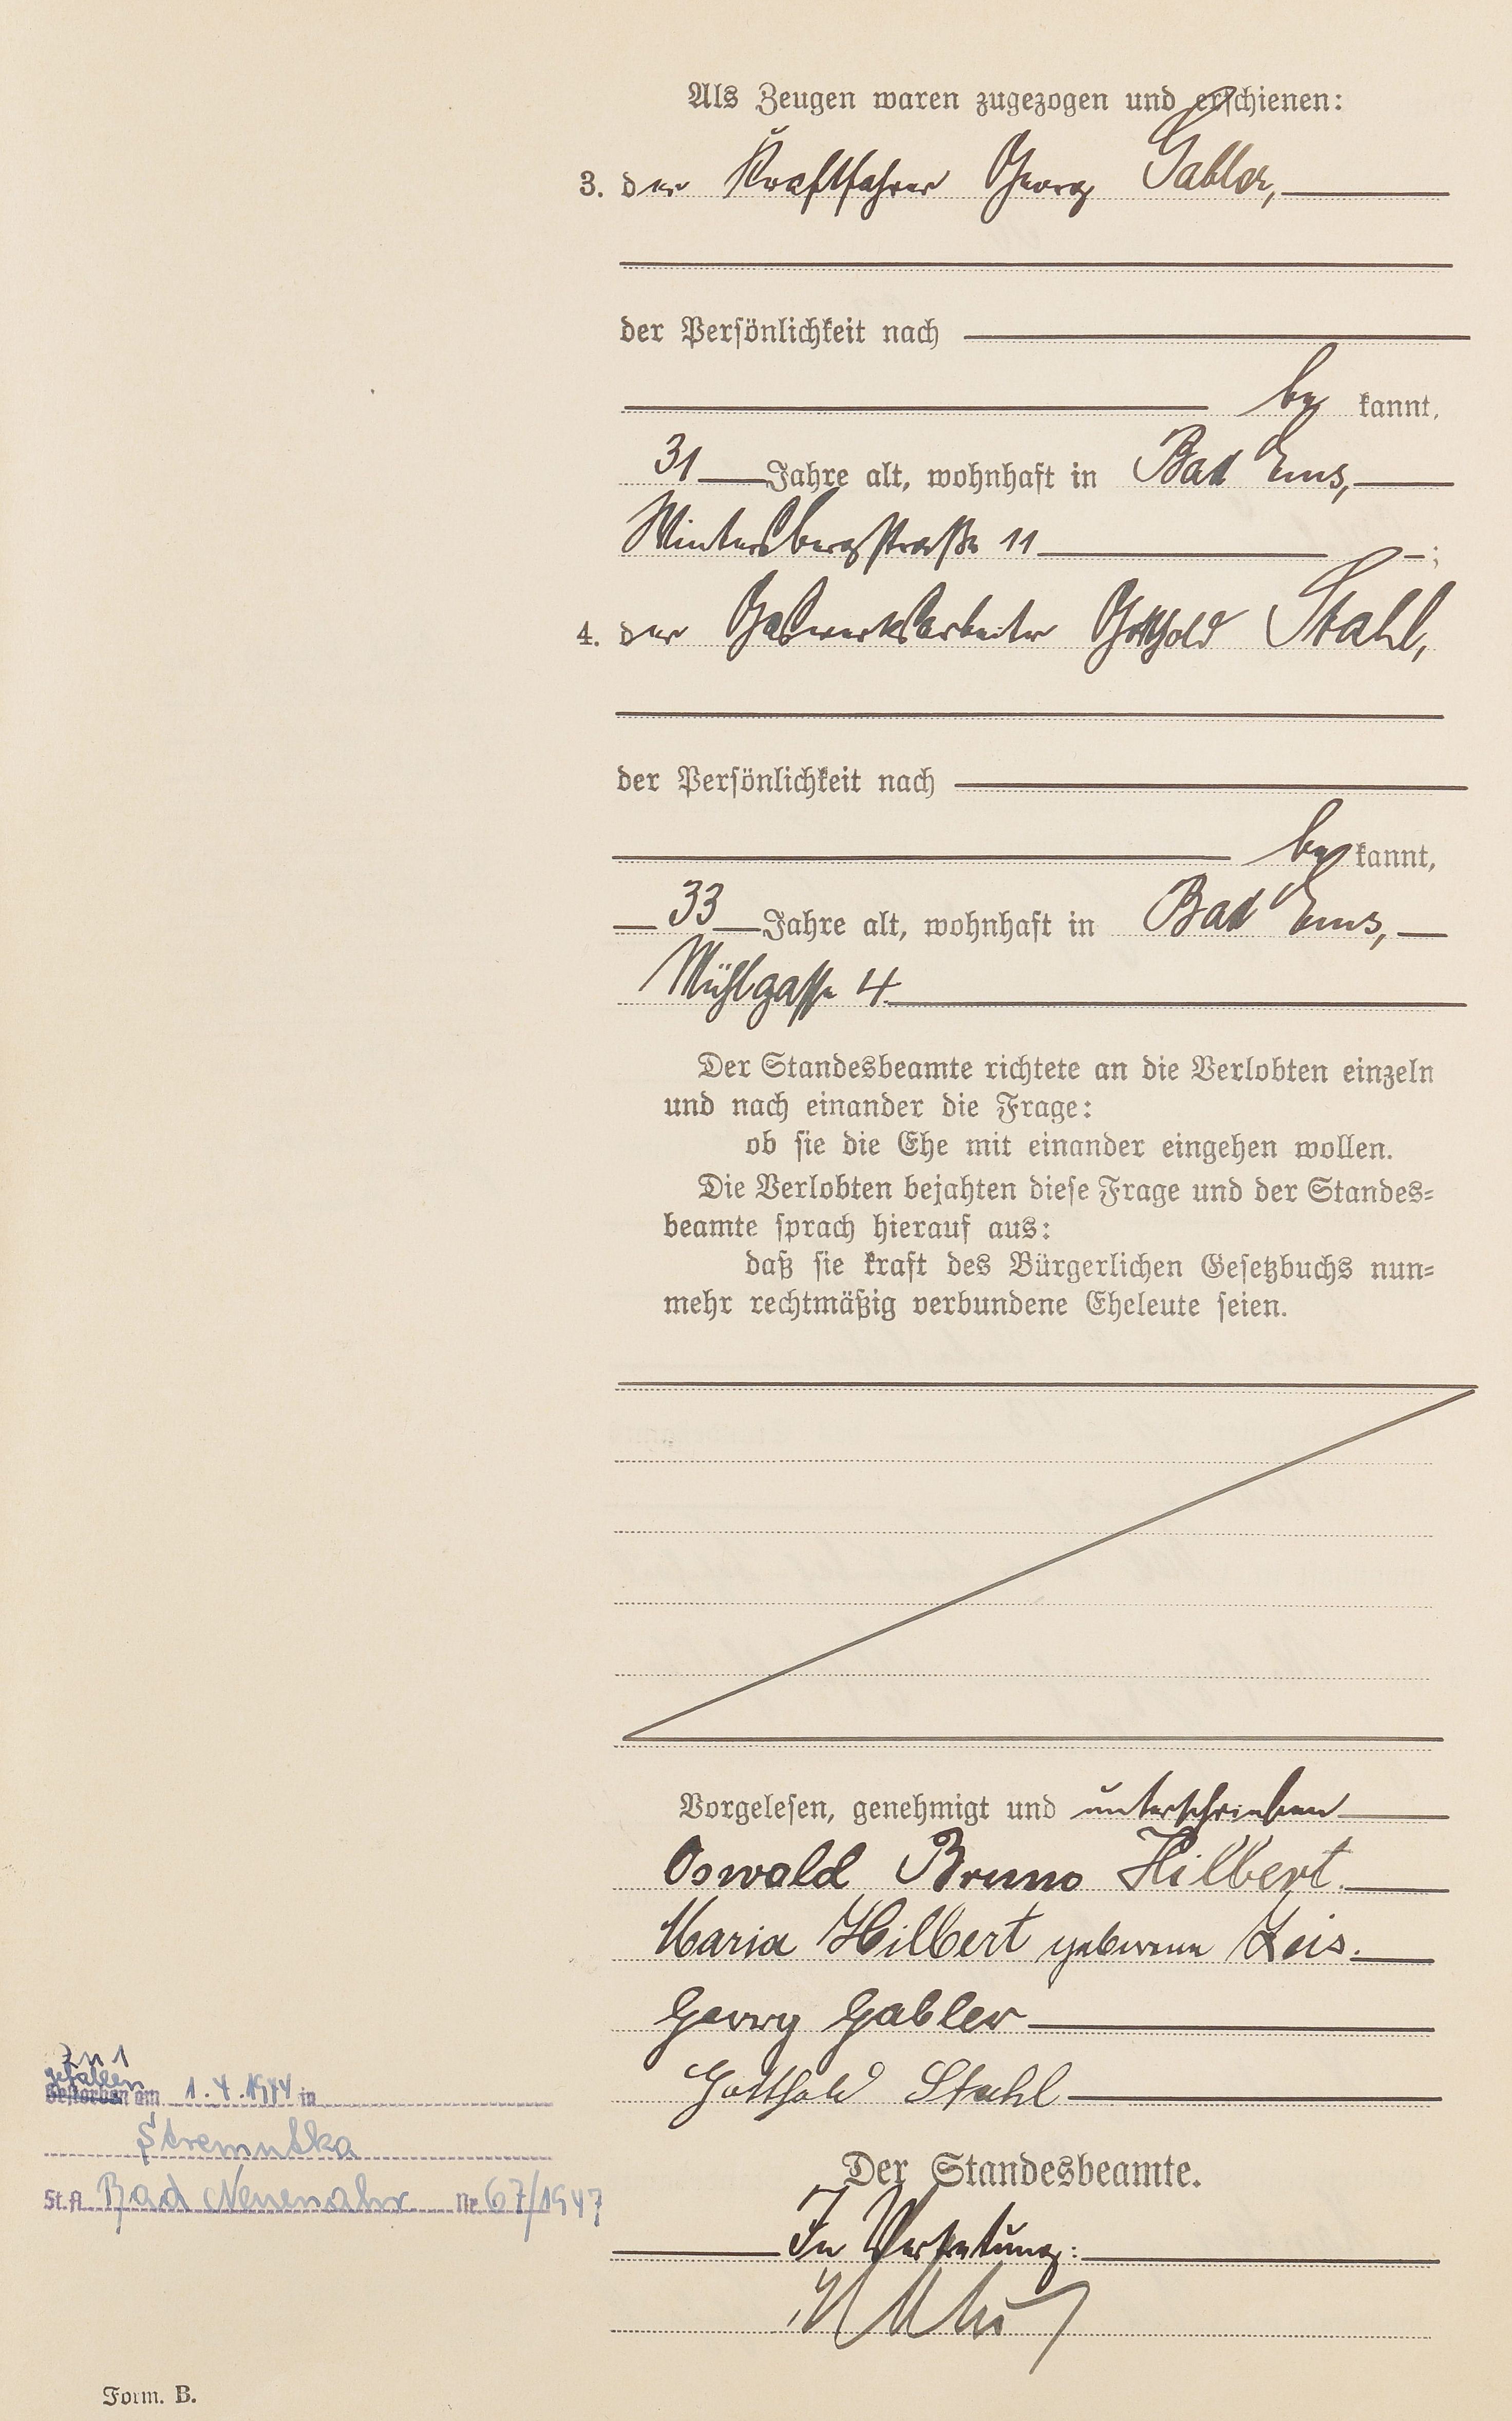 Als Zeugen waren zugezogen und erschienen:
3. der Kraftfahrer Georg Gabler,
der Persönlichkeit nach
be kannt,
31 Jahre alt, wohnhaft in Bad Ems,
Wintersbergstraße 11 ;
4. der Gaswerksarbeiter Gotthold Stahl,
der Persönlichkeit nach
be kannt,
33 Jahre alt, wohnhaft in Bad Ems,
Mühlgasse 4
Der Standesbeamte richtete an die Verlobten einzeln
und nach einander die Frage:
ob sie die Ehe mit einander eingehen wollen.
Die Verlobten bejahten diese Frage und der Standes-
beamte sprach hierauf aus:
daß sie kraft des Bürgerlichen Gesetzbuchs nun-
mehr rechtmäßig verbundene Eheleute seien.
Vorgelesen, genehmigt und unterschrieben
Oswald Bruno Hilbert.
Maria Hilbert geborene Zeis.
Georg Gabler
Gotthold Stahl
Der Standesbeamte.
In Vertretung:
Zu 1
gefallen
Gestorben am 1.4.1944 in
Stremutka
St.A. Bad Neuenahr Nr. 67/1947
Form. B.